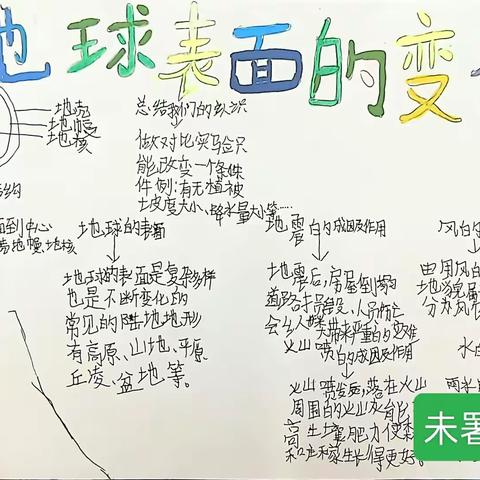 地球表面的变
地壳
地幔
地核
总结我们的知识
做对比实验只
能改变一个条件
件例:有无植被
土坡度大小、降水量大小等……
结构
面到中心
地幔地核
地球的表面
地球的表面是复杂多样
也是不断变化的
常见的陆地地形
有高原、山地、平原、
丘陵、盆地等。
地震的成因及作用
地震后,房屋倒塌
道路损毁,人员伤亡
会给人类带来严重的灾难
火山喷的成因及作用
火山喷发后,落在火山
周围的火山灰能
高土壤肥力使
和庄稼生长得更好。
风的
由风的
地貌
分为风
水的
雨水
未署